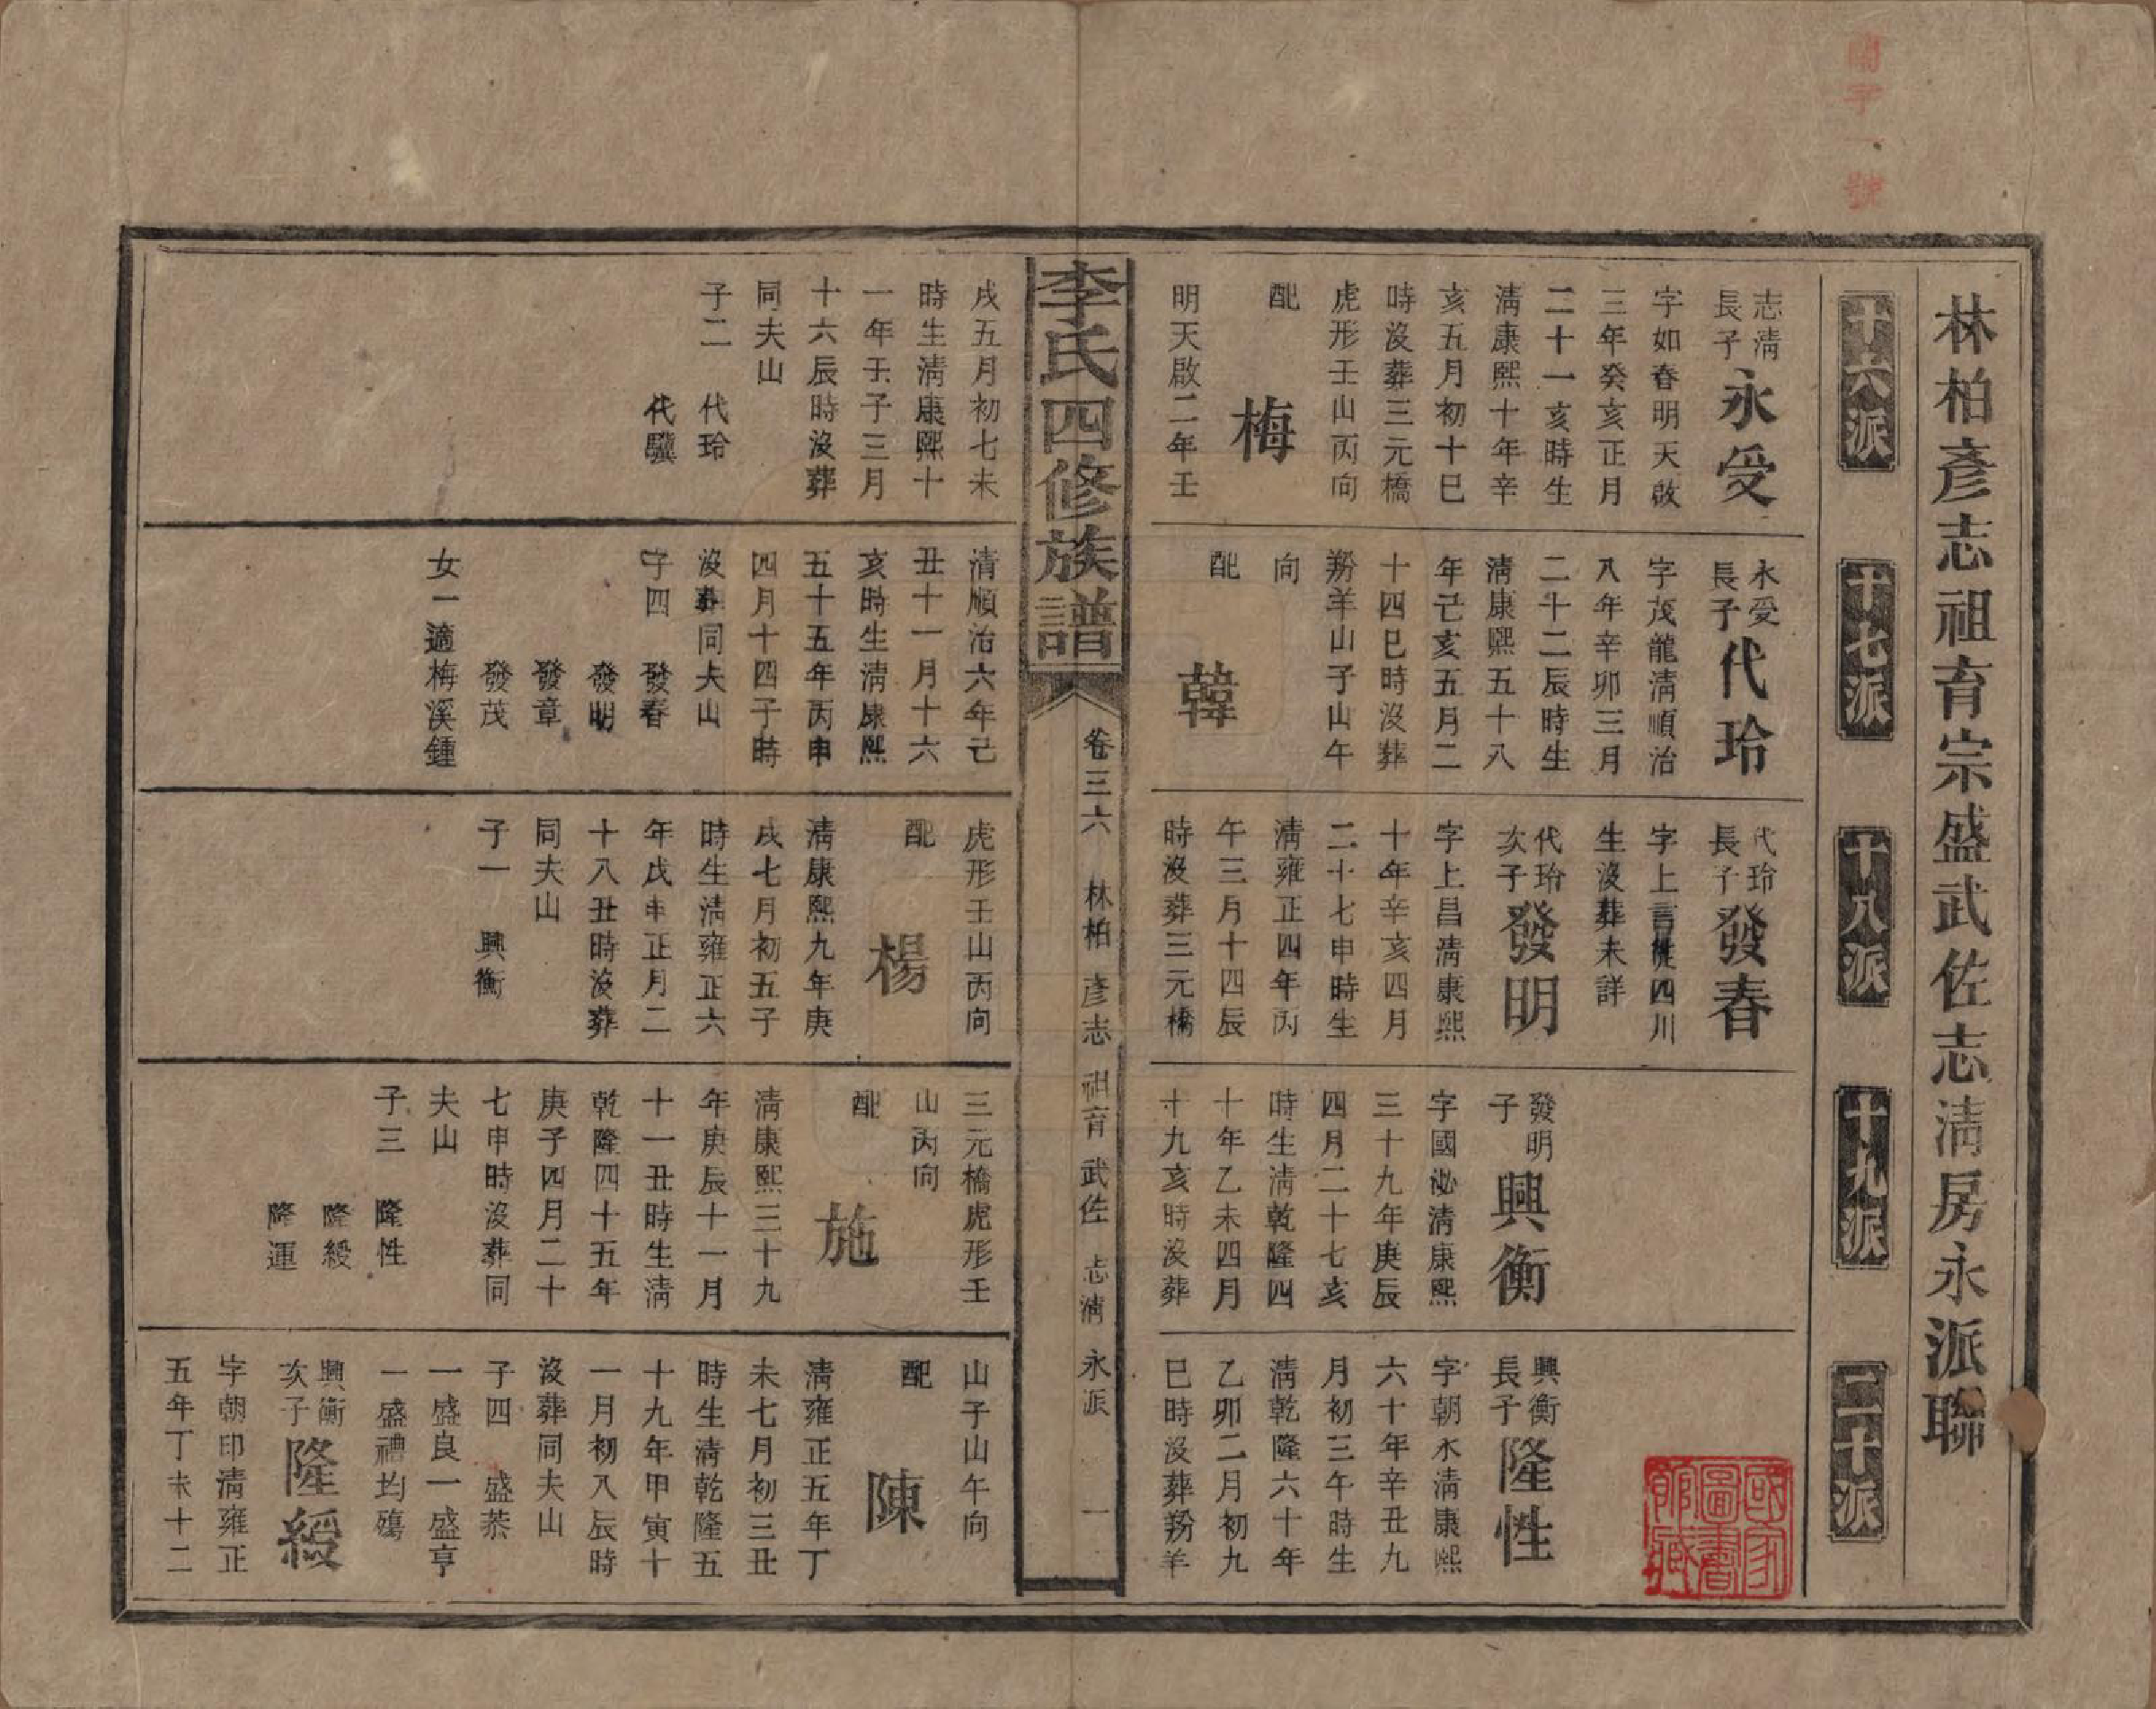 林柏彥志祖育宗盛武佐志清房永派聯
十六派
十七派
十八派
十九派
二十派
志清
長子
永受
字如春明天啟
三年癸亥正月
二十一亥時生
清康熙十年辛
亥五月初十巳
時沒葬三元橋
虎形壬山丙向
配
梅
明天啟二年壬
永受
長子
代玲
字茂龍清順治
八年辛卯三月
二十二辰時生
清康熙五十八
年己亥五月二
十四巳時沒葬
羒羊山子山午
向
配
韓
代玲
長子
發春
字上言徙四川
生沒葬未詳
代玲
次子
發明
字上昌清康熙
十年辛亥四月
二十七申時生
清雍正四年丙
午三月十四辰
時沒葬三元橋
發明
子
興衡
字國泌清康熙
三十九年庚辰
四月二十七亥
時生清乾隆四
十年乙未四月
十九亥時沒葬
興衡
長子
隆性
字朝水清康熙
六十年辛丑九
月初三午時生
清乾隆六十年
乙卯二月初九
巳時沒葬羒羊
國家圖書館藏
李氏四修族譜
卷三六
林柏
彥志
祖育
武佐
志清
永派
一
戌五月初七未
時生清康熙十
一年壬子三月
十六辰時沒葬
同夫山
子二 代玲
代驥
清順治六年己
丑十一月十六
亥時生清康熙
五十五年丙申
四月十四子時
沒葬同夫山
子四 發春
發明
發章
發茂
女一適梅溪鍾
虎形壬山丙向
配
楊
清康熙九年庚
戌七月初五子
時生清雍正六
年戊申正月二
十八丑時沒葬
同夫山
子一 興衡
三元橋虎形壬
山丙向
配
施
清康熙三十九
年庚辰十一月
十一丑時生清
乾隆四十五年
庚子四月二十
七申時沒葬同
夫山
子三 隆性
隆綬
隆運
山子山午向
配
陳
清雍正五年丁
未七月初三丑
時生清乾隆五
十九年甲寅十
一月初八辰時
沒葬同夫山
子四 盛恭
一盛良一盛亨
一盛禮均殤
興衡
次子
隆綬
字朝印清雍正
五年丁未十二